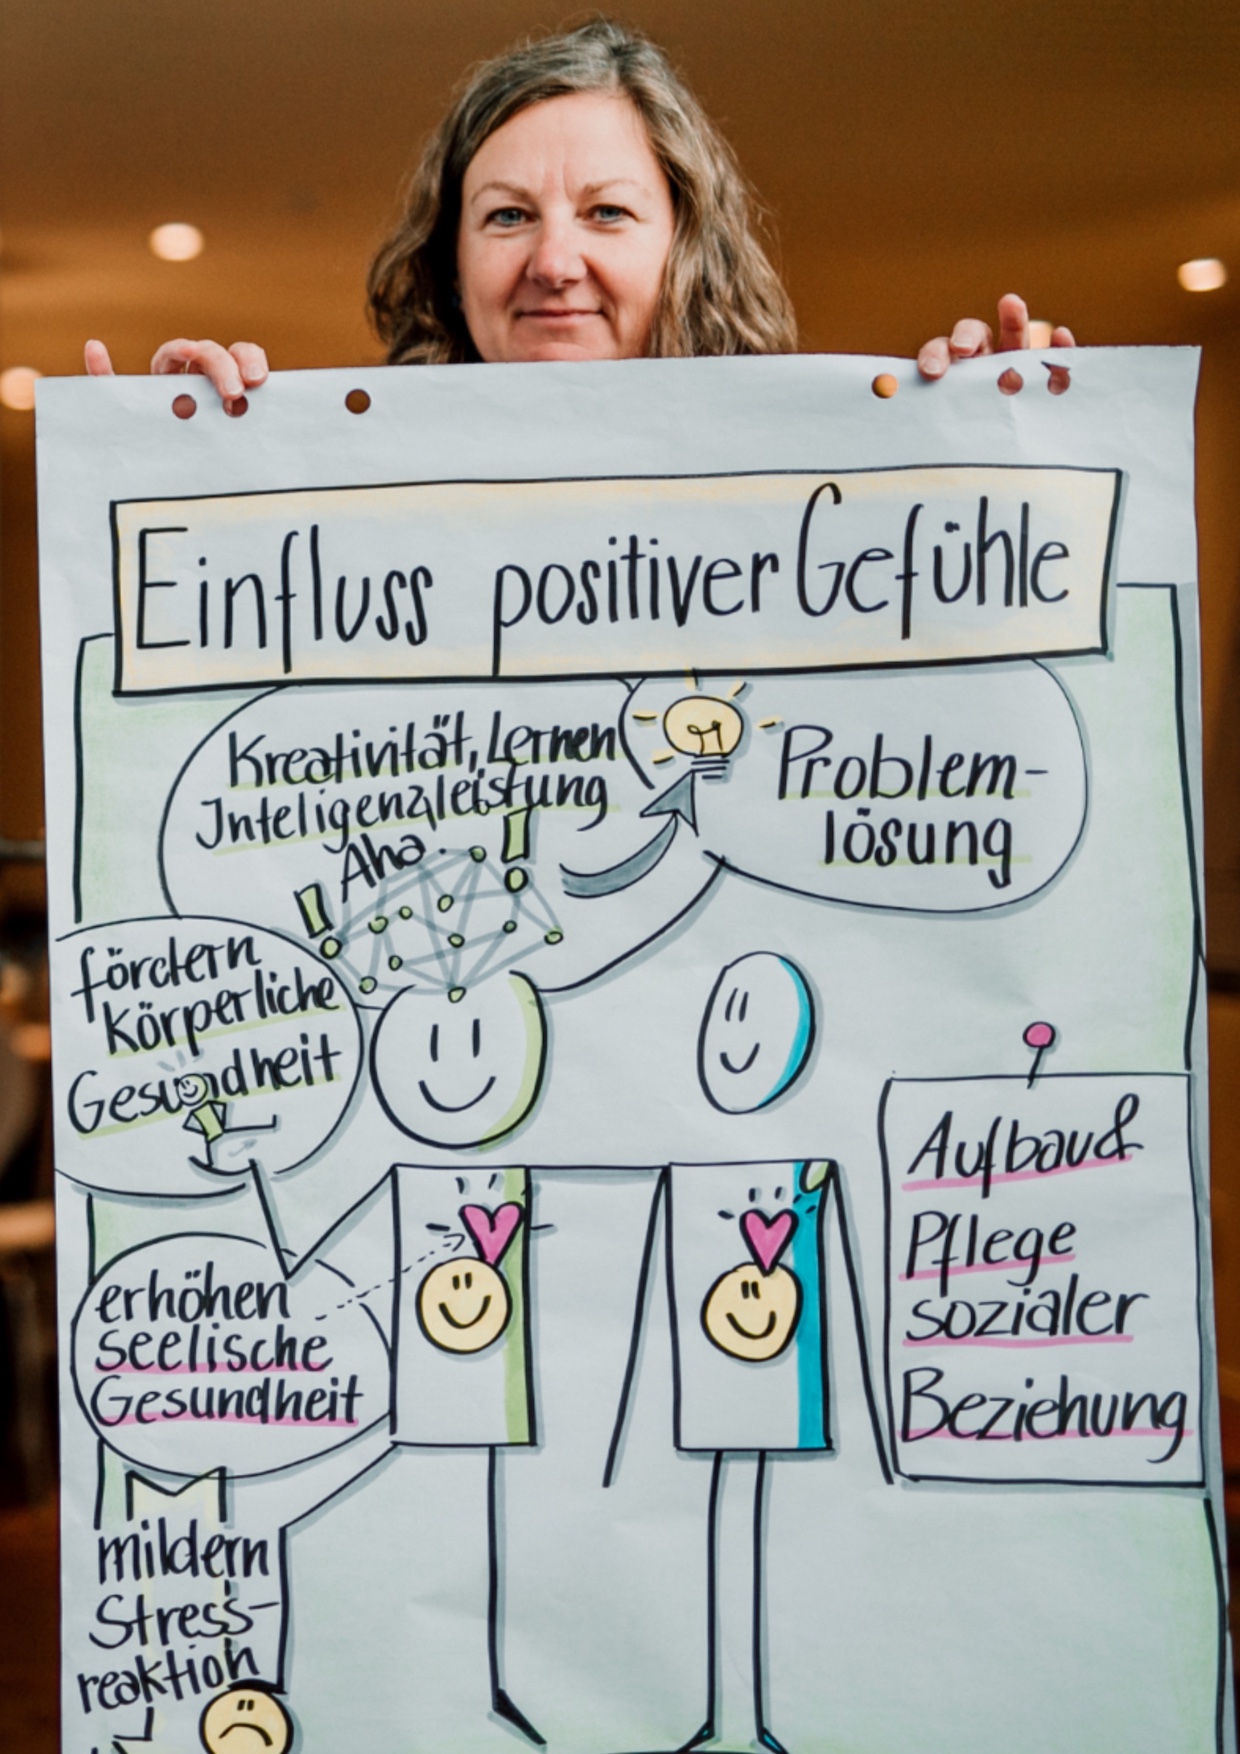 Einfluss positiver Gefühle
Kreativität, Lernen
Inteligenzleistung
Aha.
Problem-
lösung
fördern
körperliche
Gesundheit
erhöhen
seelische
Gesundheit
mildern
Stress-
reaktion
Aufbau &
Pflege
sozialer
Beziehung